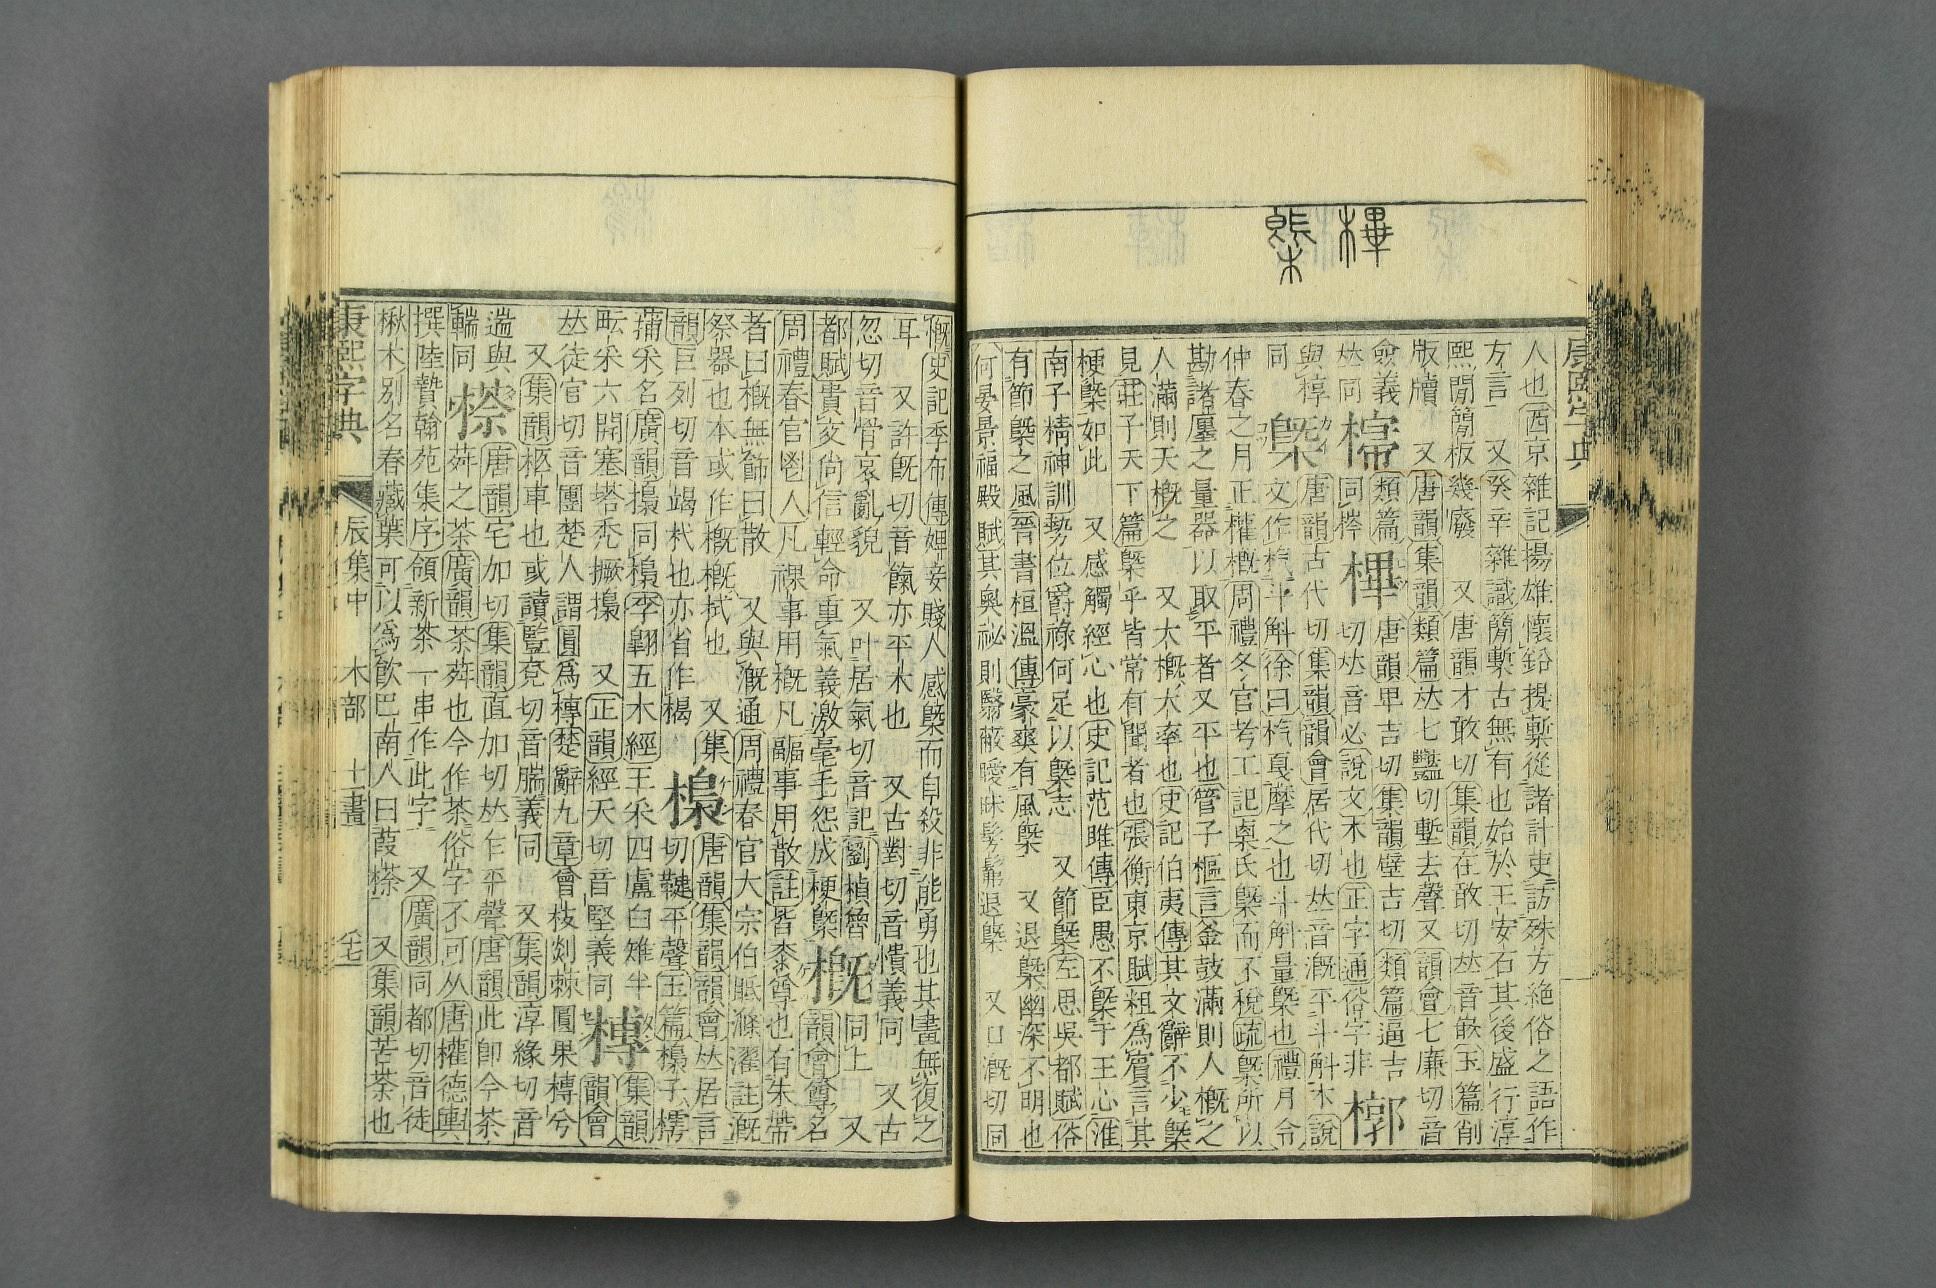 樺
槩
康熙字典
人也西京雜記揚雄懷鉛提槧從諸計吏訪殊方絶俗之語作
方言 又癸辛雜識簡槧古無有也始於王安石其後盛行淳
熙閒簡板幾廢 又唐韻才敢切集韻在敢切𠀤音嵌玉篇削
版牘 又唐韻集韻類篇𠀤七豔切塹去聲又韻會七廉切音
僉義
𠀤同 槣 類篇同㮿 樺 唐韻𤰞吉切集韻璧吉切類篇逼吉
切𠀤音必說文木也正字通俗字非 槨
與椁
同 槩 唐韻古代切集韻韻會居代切𠀤音溉平斗斛木說
文作㮣斗斛徐曰㮣戛摩之也斗斛量槩也禮月令
仲春之月正權概周禮冬官考工記㮚氏槩而不稅疏槩所以
勘諸廛之量器以取平者又平也管子樞言釜鼓滿則人概之
人滿則天概之 又大概大率也史記伯夷傳其文辭不少槩
見莊子天下篇槩乎皆常有聞者也張衡東京賦粗爲賓言其
梗槩如此 又感觸經心也史記范雎傳臣愚不槩于王心淮
南子精神訓勢位爵祿何足以槩志 又節槩左思吳都賦俗
有節槩之風晉書桓溫傳豪爽有風槩 又退槩幽深不明也
何晏景福殿賦其奧祕則翳蔽曖昧髣髴退槩 又口溉切同
慨史記季布傳婢妾賤人感槩而自殺非能勇也其畫無復之
耳 又許旣切音餼亦平木也 又古對切音憒義同 又古
忽切音骨哀亂貌 又叶居氣切音記劉楨魯
都賦貴交尙信輕命重氣義激毫毛怨成梗槩 概 同上 又
韻會尊名
周禮春官鬯人凡祼事用概凡疈事用散註皆桼尊也有朱帶
者曰概無飾曰散 又與溉通周禮春官大宗伯眡滌濯註溉
祭器也本或作概槪拭也 又集
韻巨列切音竭杙也亦省作楬 樈 唐韻集韻韻會𠀤居言
切鞬平聲玉篇樈子㯽
蒲采名廣韻樈同樈李翺五木經王采四盧白雉牛
䡖采六開塞塔禿撅樈 又正韻經天切音堅義同 槫 集韻
韻會
𠀤徒官切音團楚人謂圓爲槫楚辭九章曾枝剡棘圓果槫兮
又集韻柩車也或讀豎兗切音腨義同 又集韻淳緣切音
遄與
輲同 㯡 唐韻宅加切集韻直加切𠀤乍平聲唐韻此卽今茶
荈之茶廣韻茶荈也今作茶俗字不可从唐權德輿
撰陸贄翰苑集序領新茶一串作此字 又廣韻同都切音徒
楸木別名春藏葉可以爲飲巴南人曰葭㯡 又集韻苦茶也
康熙字典 辰集中 木部 十一畫 七